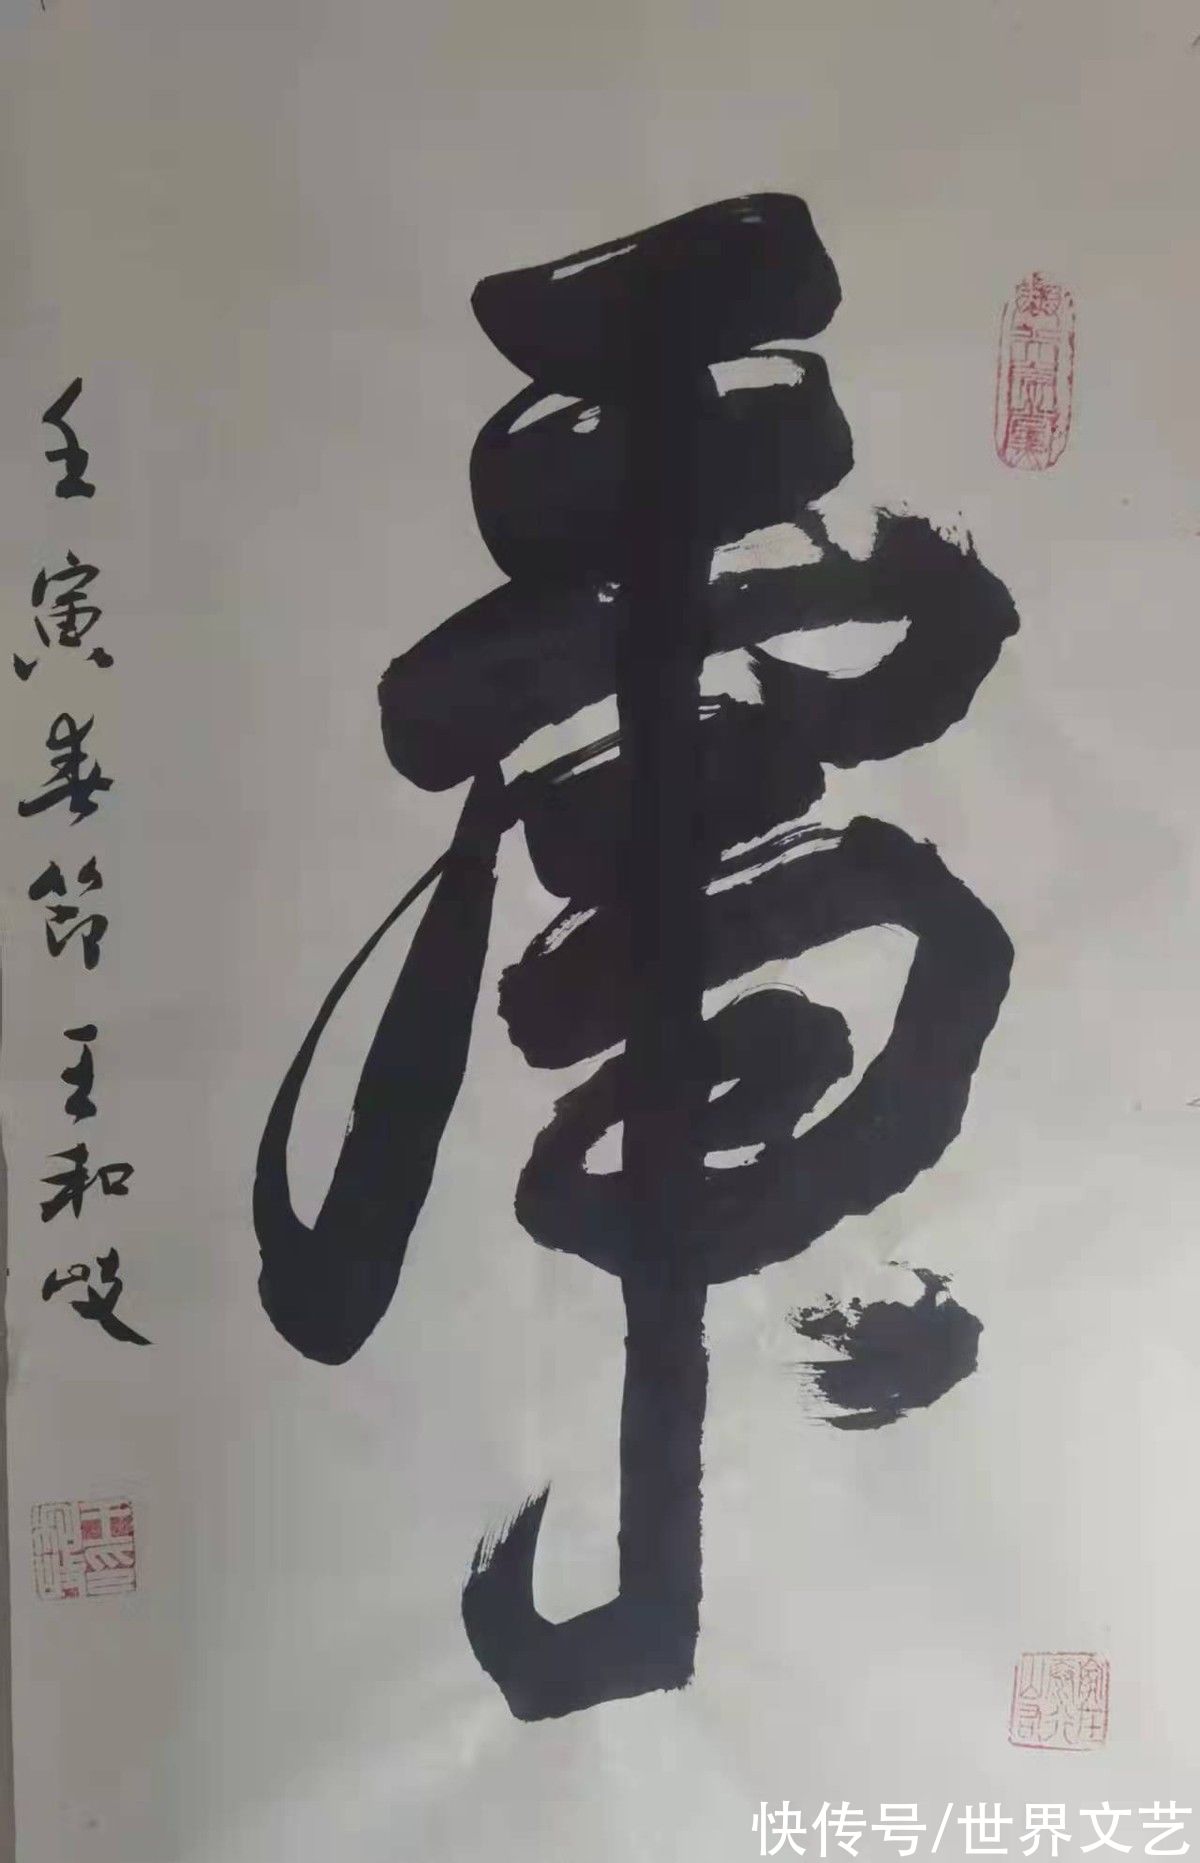 虎
壬寅春节王和岐
快传号/世界文艺